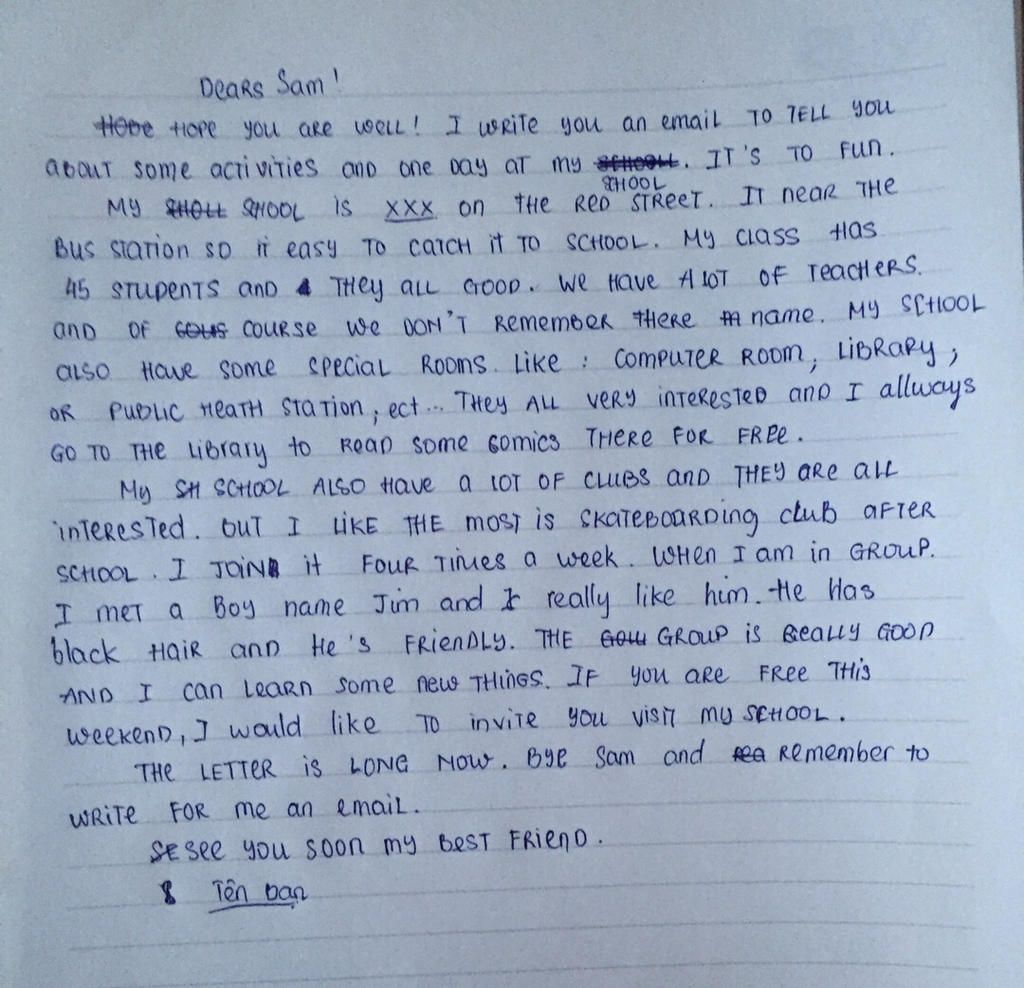 Dears Sam!
Hope HOPE you are well! I write you an email to tell you
about some activities and one day at my school. It's to fun.
My SHOLL SHOOL is XXX on the Red Street. It near the
SHOOL
Bus station so it easy to catch it to school. My class has
45 students and they all good. We have a lot of teachers.
and of cous course we don't remember there name. My school
also have some special rooms. Like: computer room, library;
or public heath station, ect... They all very interested and I allways
go to the library to read some comics there for free.
My SH school also have a lot of clubs and they are all
interested. But I like the most is skateboarding club after
school. I join it four times a week. When I am in group.
I met a boy name Jim and I really like him. He has
black hair and he's friendly. The gou group is really good
and I can learn some new things. If you are free this
weekend, I would like to invite you visit my school.
The letter is long now. Bye Sam and rea remember to
write for me an email.
Se see you soon my best friend.
Tên bạn